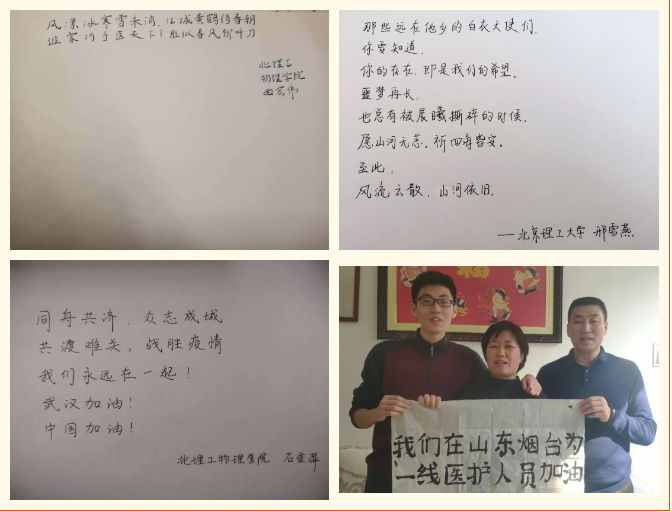 风凛冰寒雪未消，江城黄鹤待春朝
谁家巧手医天下？胜似春风柳叶刀
北理工
物理学院
那些远在他乡的白衣天使们，
你要知道，
你的存在，即是我们的希望。
噩梦再长，
也总有被晨曦撕碎的时候。
愿山河无恙，祈四海皆安。
至此，
风流云散，山河依旧。
——北京理工大学 邢雪燕
同舟共济，众志成城
共渡难关，战胜疫情
我们永远在一起！
武汉加油！
中国加油！
北理工物理学院 石莹萍
福
我们在山东烟台为
一线医护人员加油